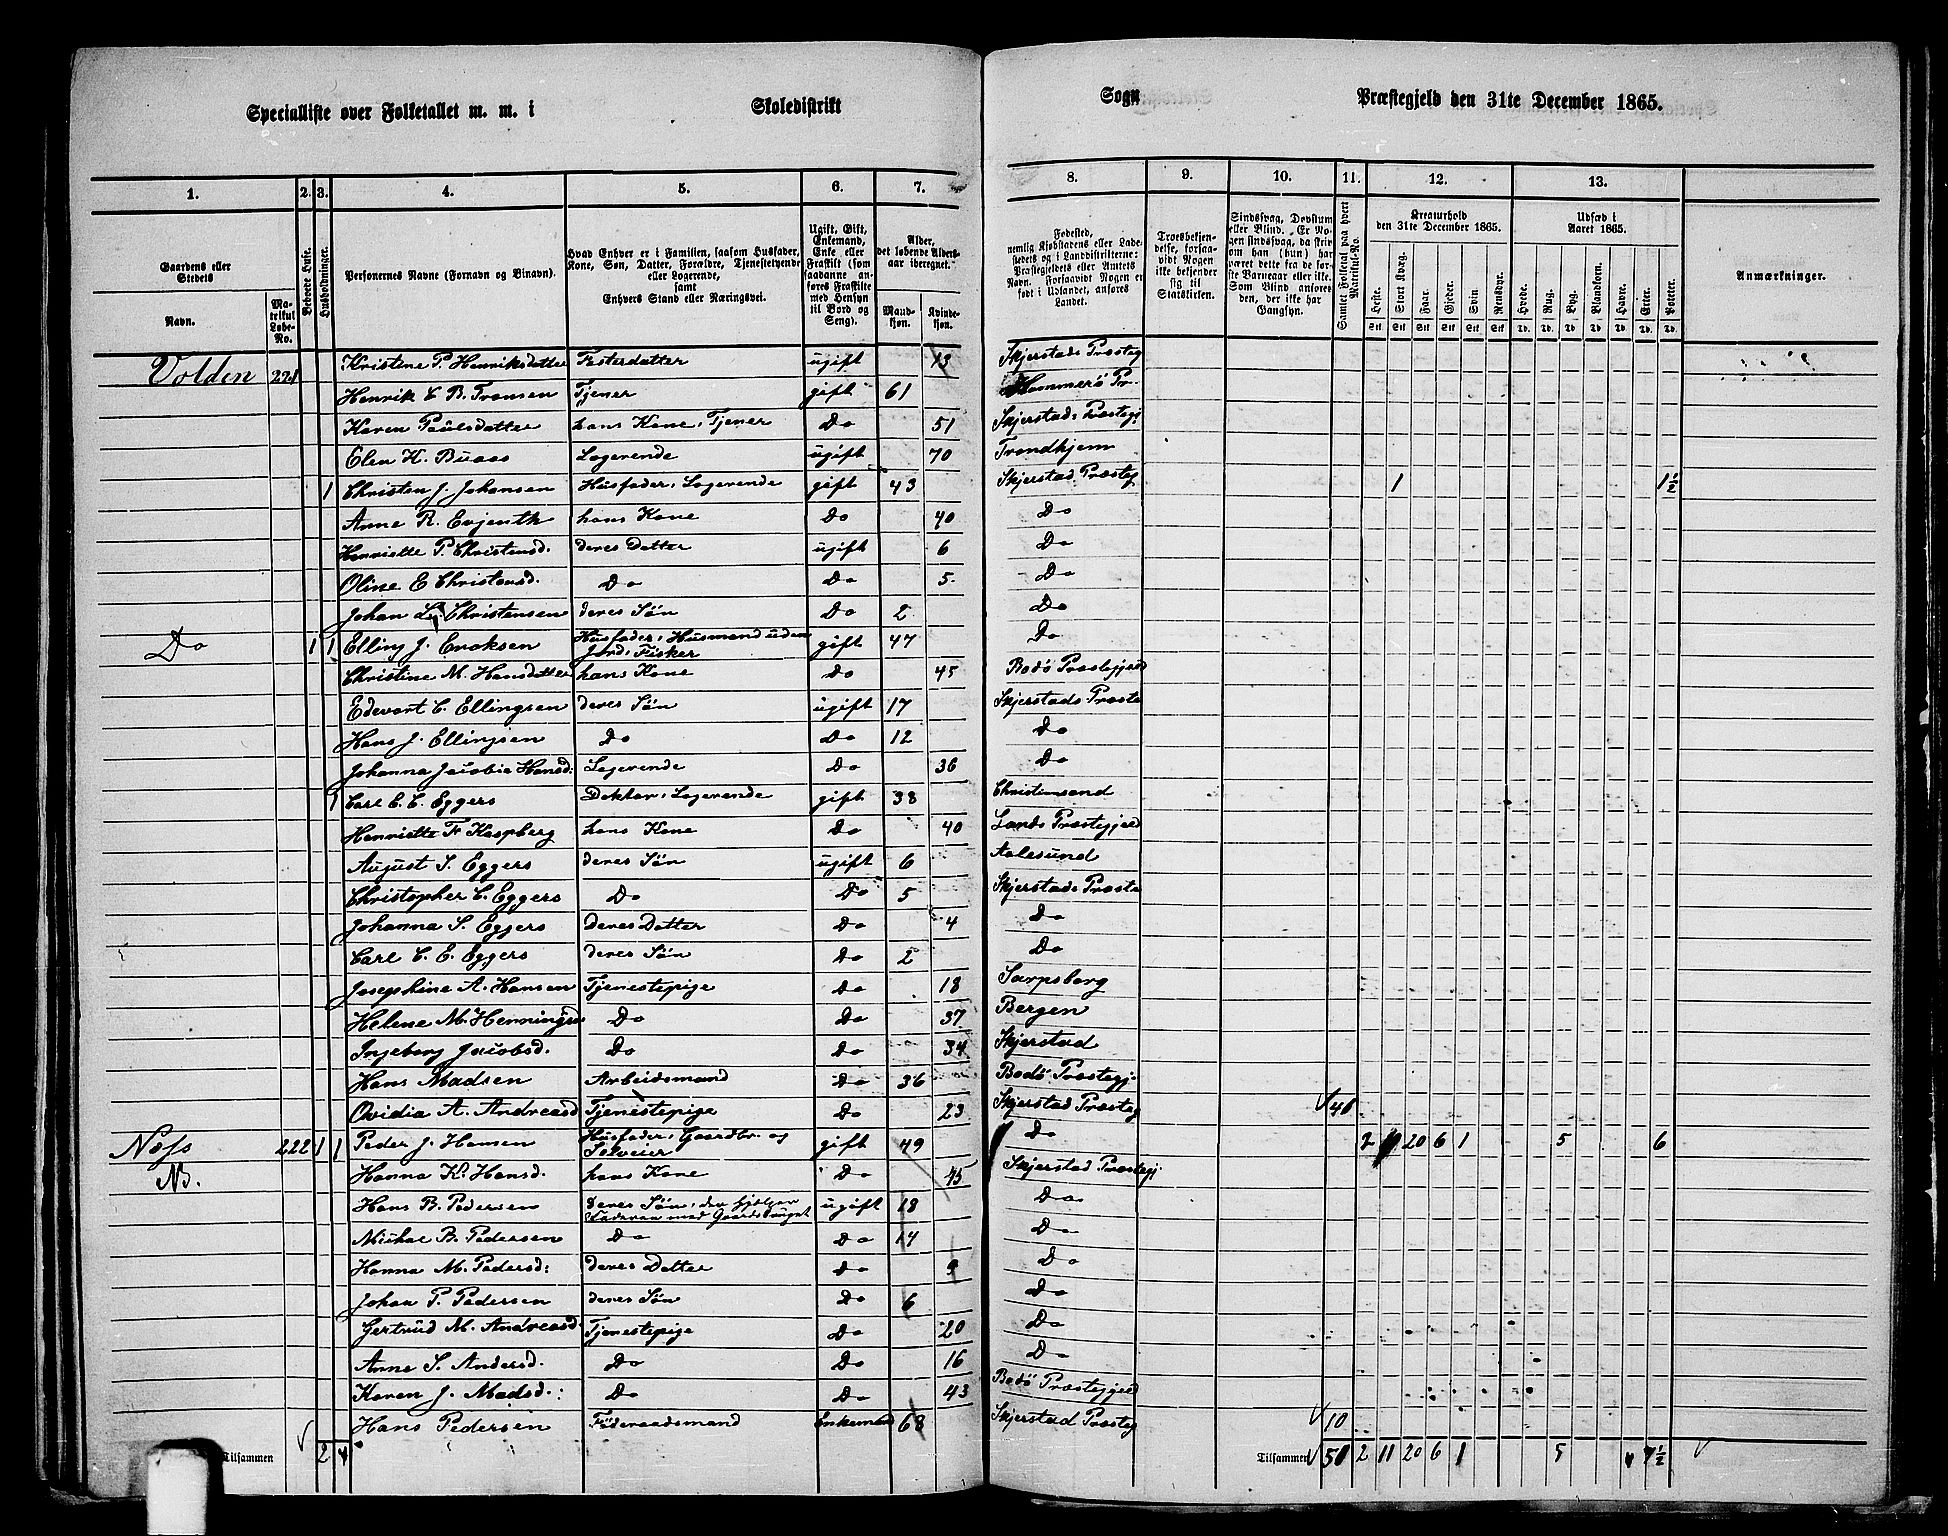 Specialliste over Folketallet m. m. i Skoledistrikt Sogn Præstegjeld den 31te December 1865.
1. 2. 3. 4. 5. 6. 7. 8. 9. 10. 11. 12. 13.
Gaardens eller Stedets Navn. Matrikul Løbe-No. Beboede Huse. Husholdninger. Personernes Navne (Fornavn og Binavn). Hvad Enhver er i Familien, saasom Husfader, Kone, Søn, Datter, Forældre, Tjenestetyende eller Logerende, samt Enhvers Stand eller Næringsvei. Ugift, Gift, Enkemand, Enke eller Fraskilt (som saadanne anføres Fraskilte med Hensyn til Bord og Seng). Alder, det løbende Aldersaar iberegnet. Mandkjøn. Kvindekjøn.
Fødested, nemlig Kjøbstadens eller Ladestedets og i Landdistrikterne: Præstegjeldets eller Amtets Navn. Forsaavidt Nogen er født i Udlandet, anføres Landet. Troesbekjendelse, forsaavidt Nogen ikke bekjender sig til Statskirken. Sindssvag, Døvstum eller Blind. Er Nogen sindssvag, da skrives om han (hun) har været dette fra de første Barneaar eller ikke. Som Blind anføres den, der ikke har Gangsyn. Samlet Folketal paa hvert Matrikul-No. Kreaturhold den 31te December 1865. Heste. Stort Kvæg. Faar. Gjeder. Svin. Rensdyr. Udsæd i Aaret 1865. Hvede. Rug. Byg. Blandkorn. Havre. Erter. Poteter. Anmærkninger.
Volden 221 Kristine P. Henriksdatter Fosterdatter ugift 13 Skjerstads Præsteg
Henrik C B. Transen Tjener gift 61 Hammerø Pr.
Karen Paulsdatter hans Kone, Tjener Do 51 Skjerstads Præstegj
Elen H. Buaas Logerende ugift 70 Trondhjem
1 Christen J. Johansen Husfader, Logerende gift 43 Skjerstad Præsteg 1 1 1/2
Anne R. Evjenth hans Kone Do 40 Do
Henriette P. Christensd. deres Datter ugift 6 Do
Oline E Christensd. Do Do 5 Do
Johan L. Christensen deres Søn Do 2 Do
Do 1 1 Elling J. Enoksen Husfader, Husmand uden Jord, Fisker gift 47 Do
Christine M. Hansdatter hans Kone Do 45 Bodø Præstegjeld
Edevart C. Ellingsen deres Søn ugift 17 Skjerstads Præste
Hans J. Ellingsen Do Do 12 Do
Johanna Jacobia Hansd: Logerende Do 36 Do
1 Carl C. C. Eggers Doktor, Logerende gift 38 Christiansand
Henriette F. Kaspberg hans Kone Do 40 Lands Præstegjeld
August S. Eggers deres Søn ugift 6 Aalesund
Christopher C. Eggers Do Do 5 Skjerstads Præste
Johanna S. Eggers deres Datter Do 4 Do
Carl C. E. Eggers deres Søn Do 2 Do
Josephine A. Hansen Tjenestepige Do 18 Sarpsborg
Helene M. Henningsen Do Do 37 Bergen
Ingeborg Jacobsd. Do Do 34 Skjerstad
Hans Madsen Arbeidsmand Do 36 Bodø Præstegj.
Ovidia A. Andreasd Tjenestepige Do 23 Skjerstad Præsteg
Næss 222 1 1 Peder J. Hansen Husfader, Gaardbr. og Selveier gift 49 Do 2 11 20 6 1 5 6
NB. Hanna K. Hansd. hans Kone Do 45 Skjerstad Præstegj.
Hans B. Pedersen Deres Søn, der hjelper Faderen med Gaardsbruget ugift 18 Do
Mikal B. Pedersen Do Do 14 Do
Hanna M. Pedersd: deres Datter Do 9 Do
Johan P. Pedersen deres Søn Do 6 Do
Gertrud M. Andreasd. Tjenestepige Do 20 Do
Anne S. Andersd. Do Do 16 Do
Karen J. Madsd.: Do Do 43 Bodø Præstegjeld
Hans Pedersen Føderaadsmand Enkemand 68 Skjerstad Præsteg 10
Tilsammen 2 4 Tilsammen 2 11 20 6 1 5 7 1/2